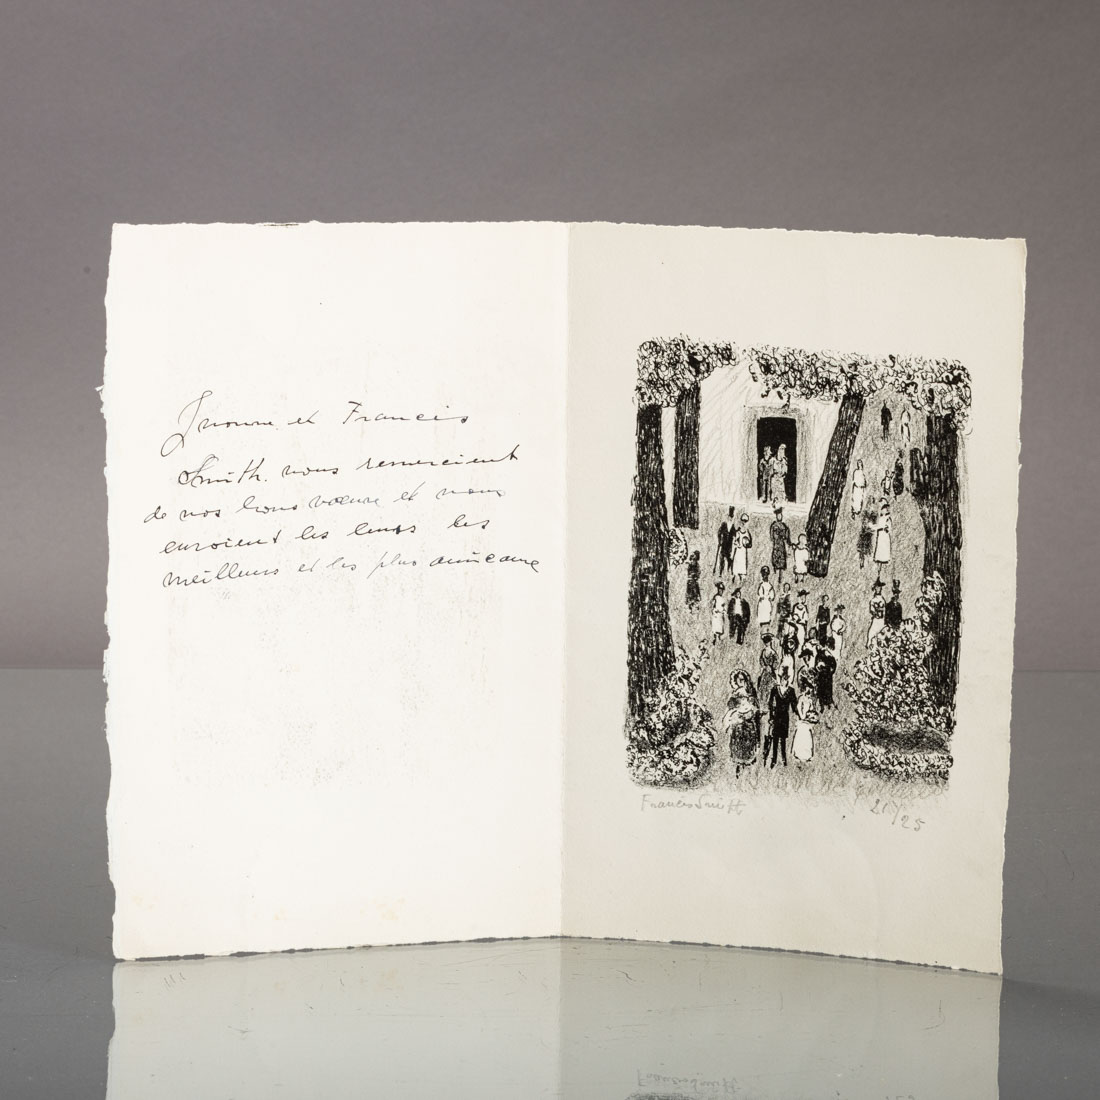 Yvonne et Francis
Smith. vous remercient
de vos bons vœux et vous
envoient les leurs les
meilleurs et les plus amicaux
Francis Smith
/25